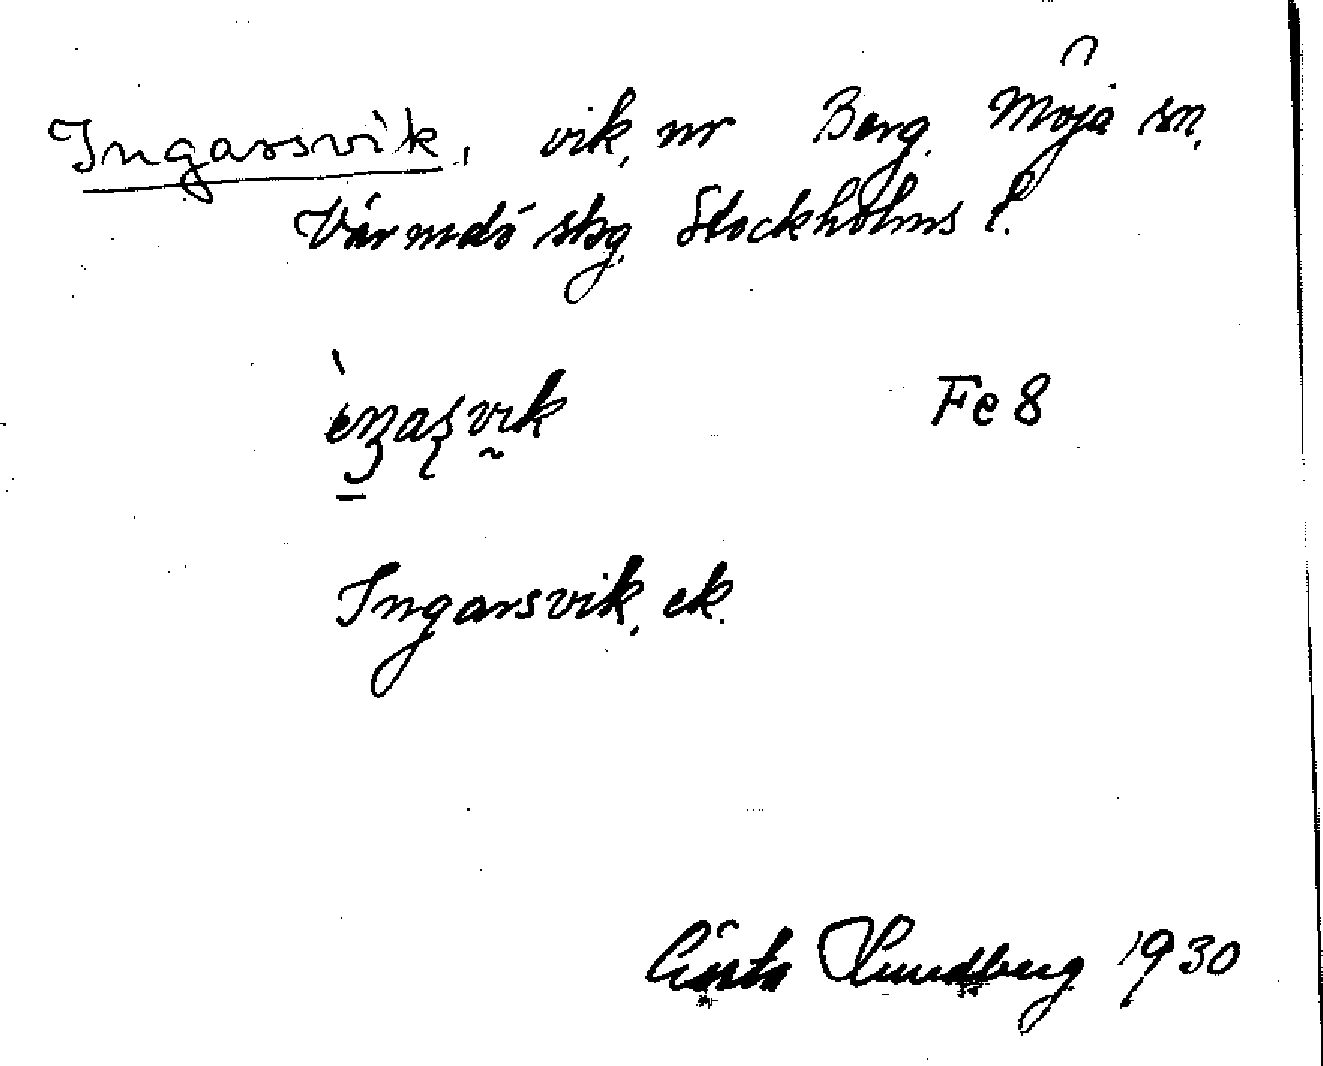 Ingarsvik, vik, nr Berg. Möja sn,
Värmdö skg Stockholms l.
Fe 8
Ingarsvik, ek.
Gösta Lundberg 1930